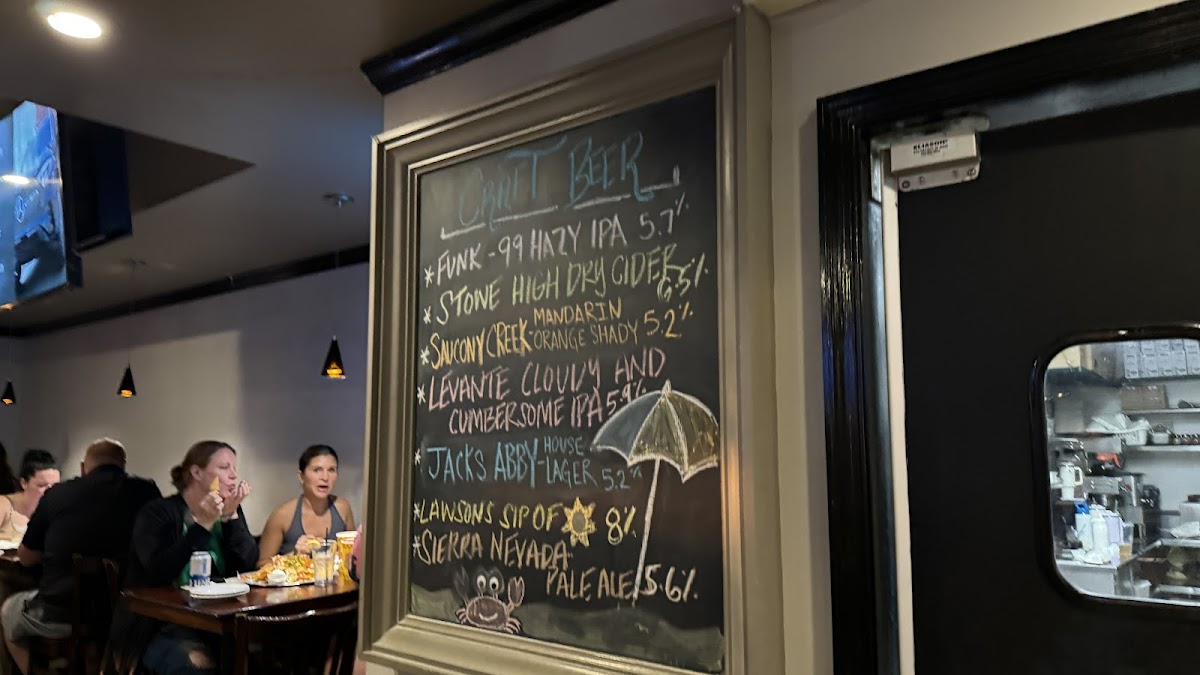 CRAFT BEER
*FUNK-99 HAZY IPA 5.7%
*STONE HIGH DRY CIDER 6.5%
*SAUCONY CREEK-MANDARIN
ORANGE SHADY 5.2%
*LEVANTE CLOUDY AND
CUMBERSOME IPA 5.9%
*JACKS ABBY-HOUSE
LAGER 5.2%
*LAWSONS SIP OF 8%
*SIERRA NEVADA
PALE ALE 5.6%
ELIASON